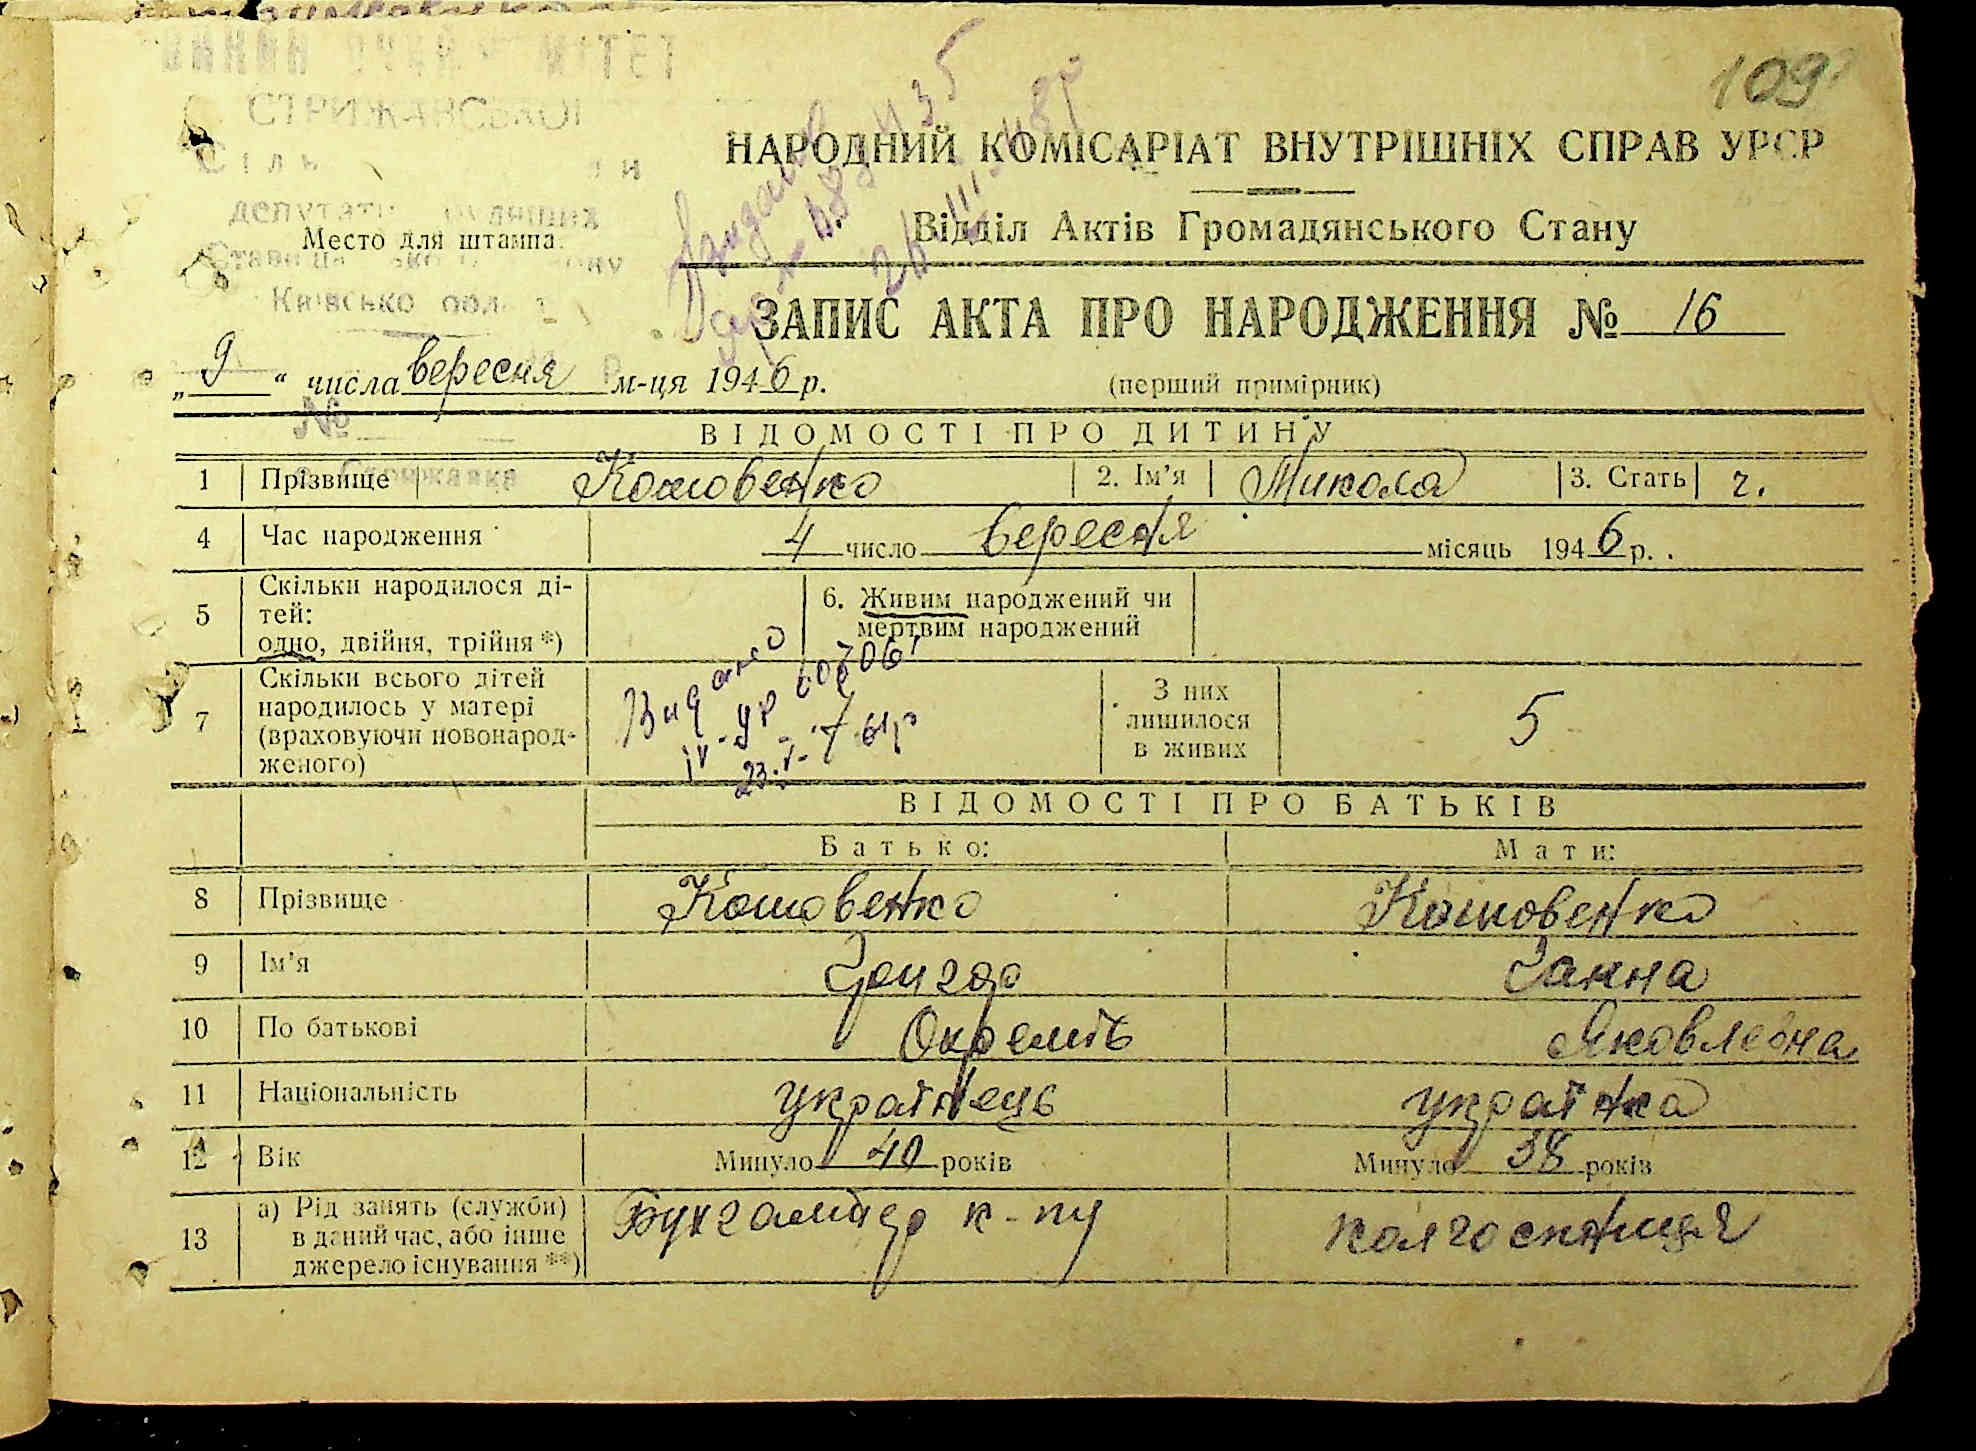 109
СТРИЖАВСЬКОЇ
депутатів трудящих
Место для штампа.
Київсько
НАРОДНИЙ КОМІСАРІАТ ВНУТРІШНІХ СПРАВ УРСР
Відділ Актів Громадянського Стану
ЗАПИС АКТА ПРО НАРОДЖЕННЯ № 16
„9“ числа вересня м-ця 1946 р.
(перший примірник)
№
ВІДОМОСТІ ПРО ДИТИНУ
1 Прізвище Кошовенко 2. Ім’я Микола 3. Стать ч.
4 Час народження 4 число вересня місяць 1946 р.
5 Скільки народилося ді-
тей:
одно, двійня, трійня *)
6. Живим народжений чи
мертвим народжений
7 Скільки всього дітей
народилось у матері
(враховуючи новонарод-
женого)
Видано
23.V.
З них
лишилося
в живих
5
ВІДОМОСТІ ПРО БАТЬКІВ
Батько: Мати:
8 Прізвище Кошовенко Кошовенко
9 Ім’я Григор Ганна
10 По батькові Яковлевна
11 Національність українець українка
12 Вік Минуло 40 років Минуло 38 років
13 а) Рід занять (служби)
в даний час, або інше
джерело існування **)
Бухгалтер к-пу
колгоспниця